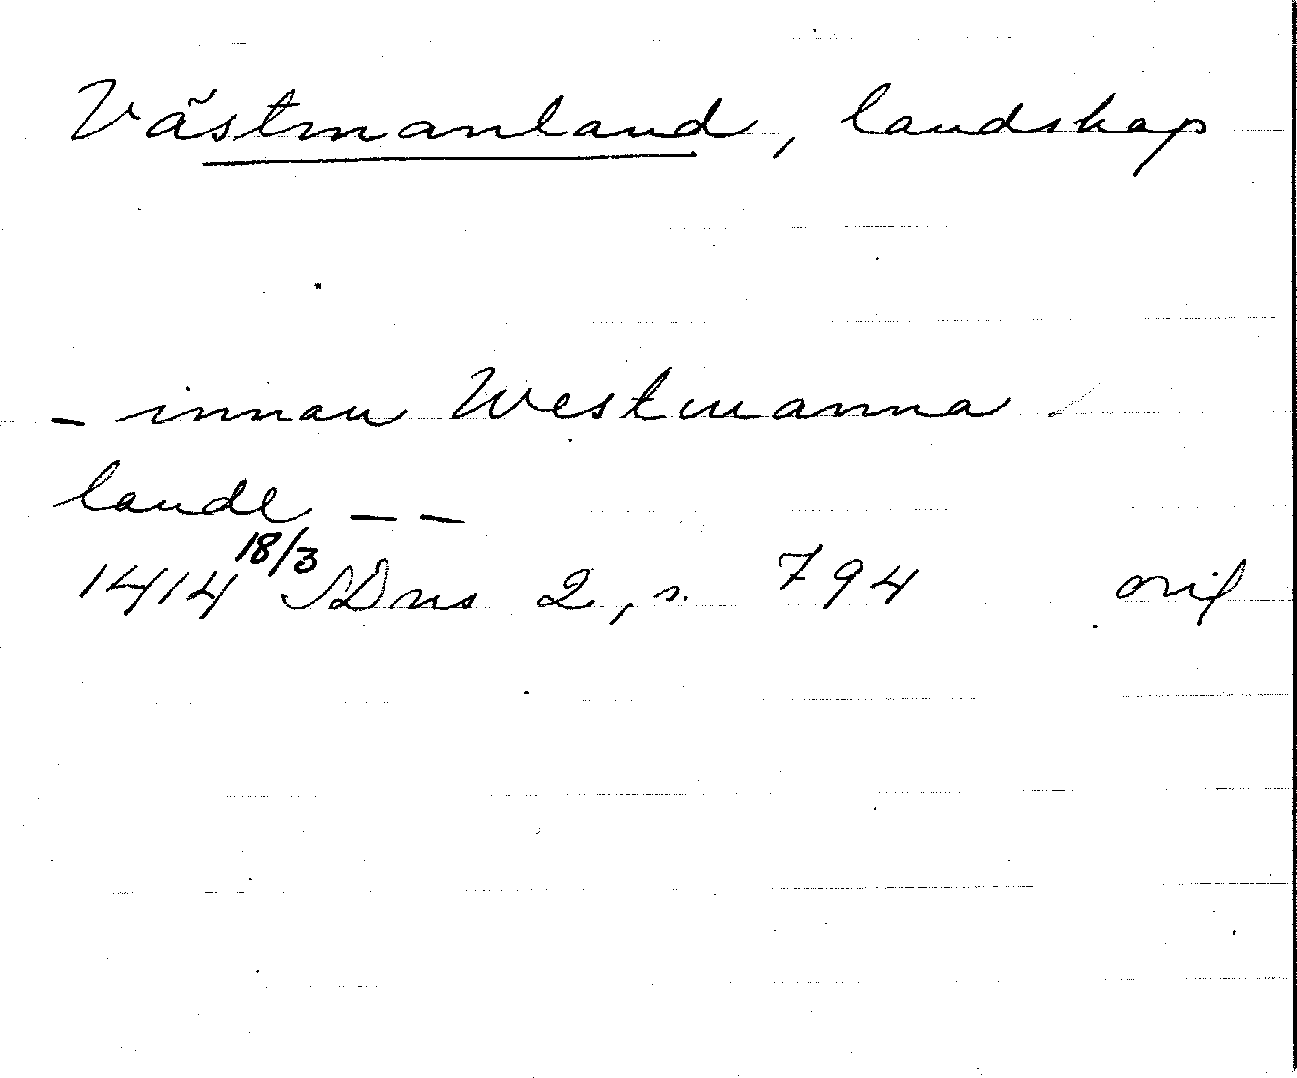 Västmanland, landskap
– innan Westmanna
lande – –
1414 18/3 SDns 2, s. 794 orig